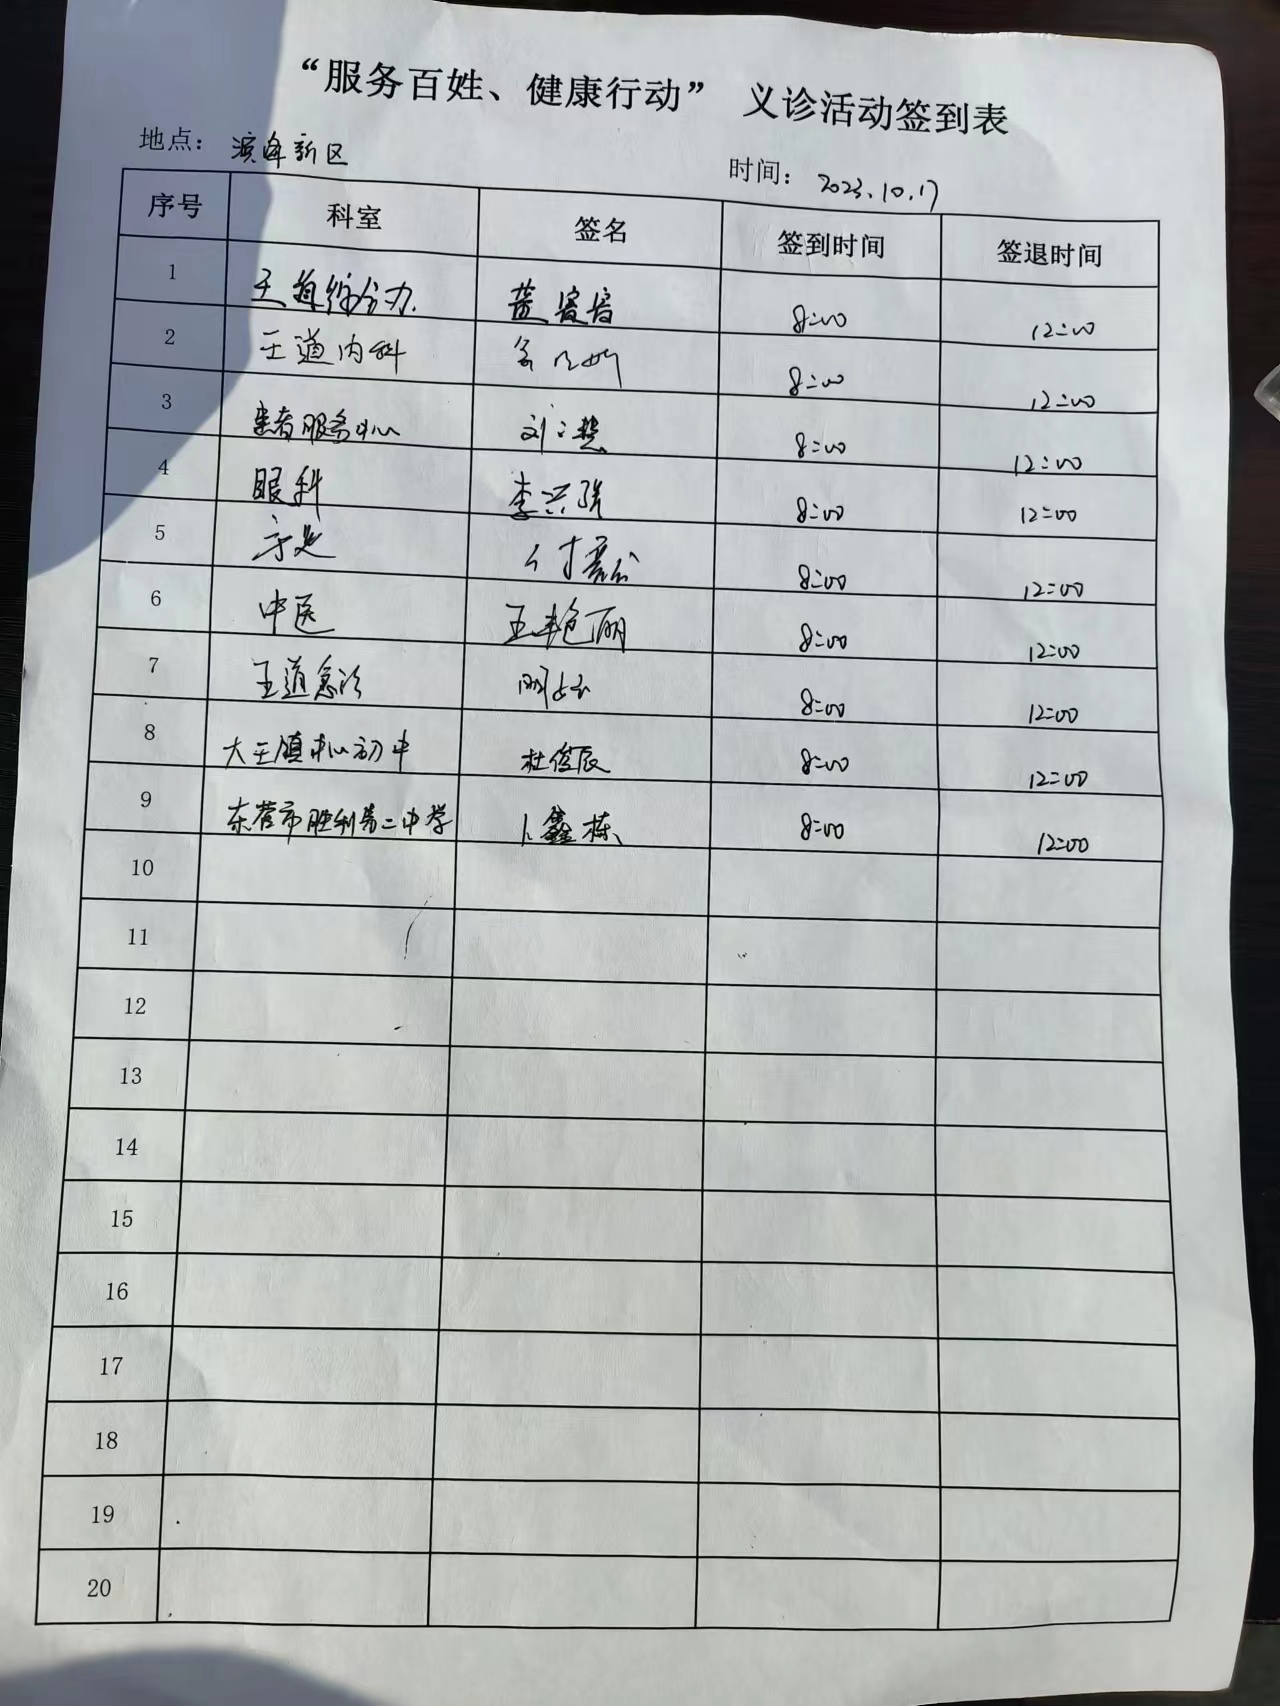 “服务百姓、健康行动” 义诊活动签到表
地点: 滨 新区 时间: 2023.10.17
序号 科室 签名 签到时间 签退时间
1 王道综合办 8:00 12:00
2 王道内科 8:00 12:00
3 患者服务中心 刘 慧 8:00 12:00
4 眼科 李兴强 8:00 12:00
5 付 8:00 12:00
6 中医 王艳丽 8:00 12:00
7 王道急诊 8:00 12:00
8 大王镇中心初中 杜俊辰 8:00 12:00
9 东营市胜利第二中学 卜鑫栋 8:00 12:00
10
11
12
13
14
15
16
17
18
19
20